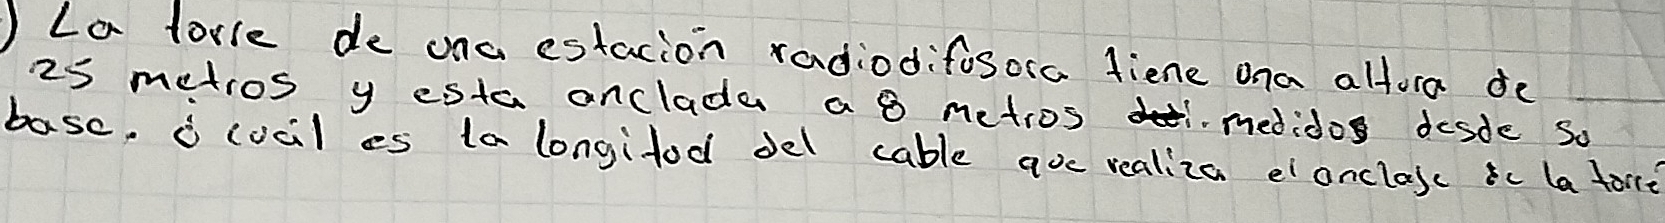 ) La torre de una estación radiodifusora tiene una altura de
25 metros y esta anclada a 8 metros medidos desde su
base. ¿ cuál es la longitud del cable que realiza el anclaje de la torre?